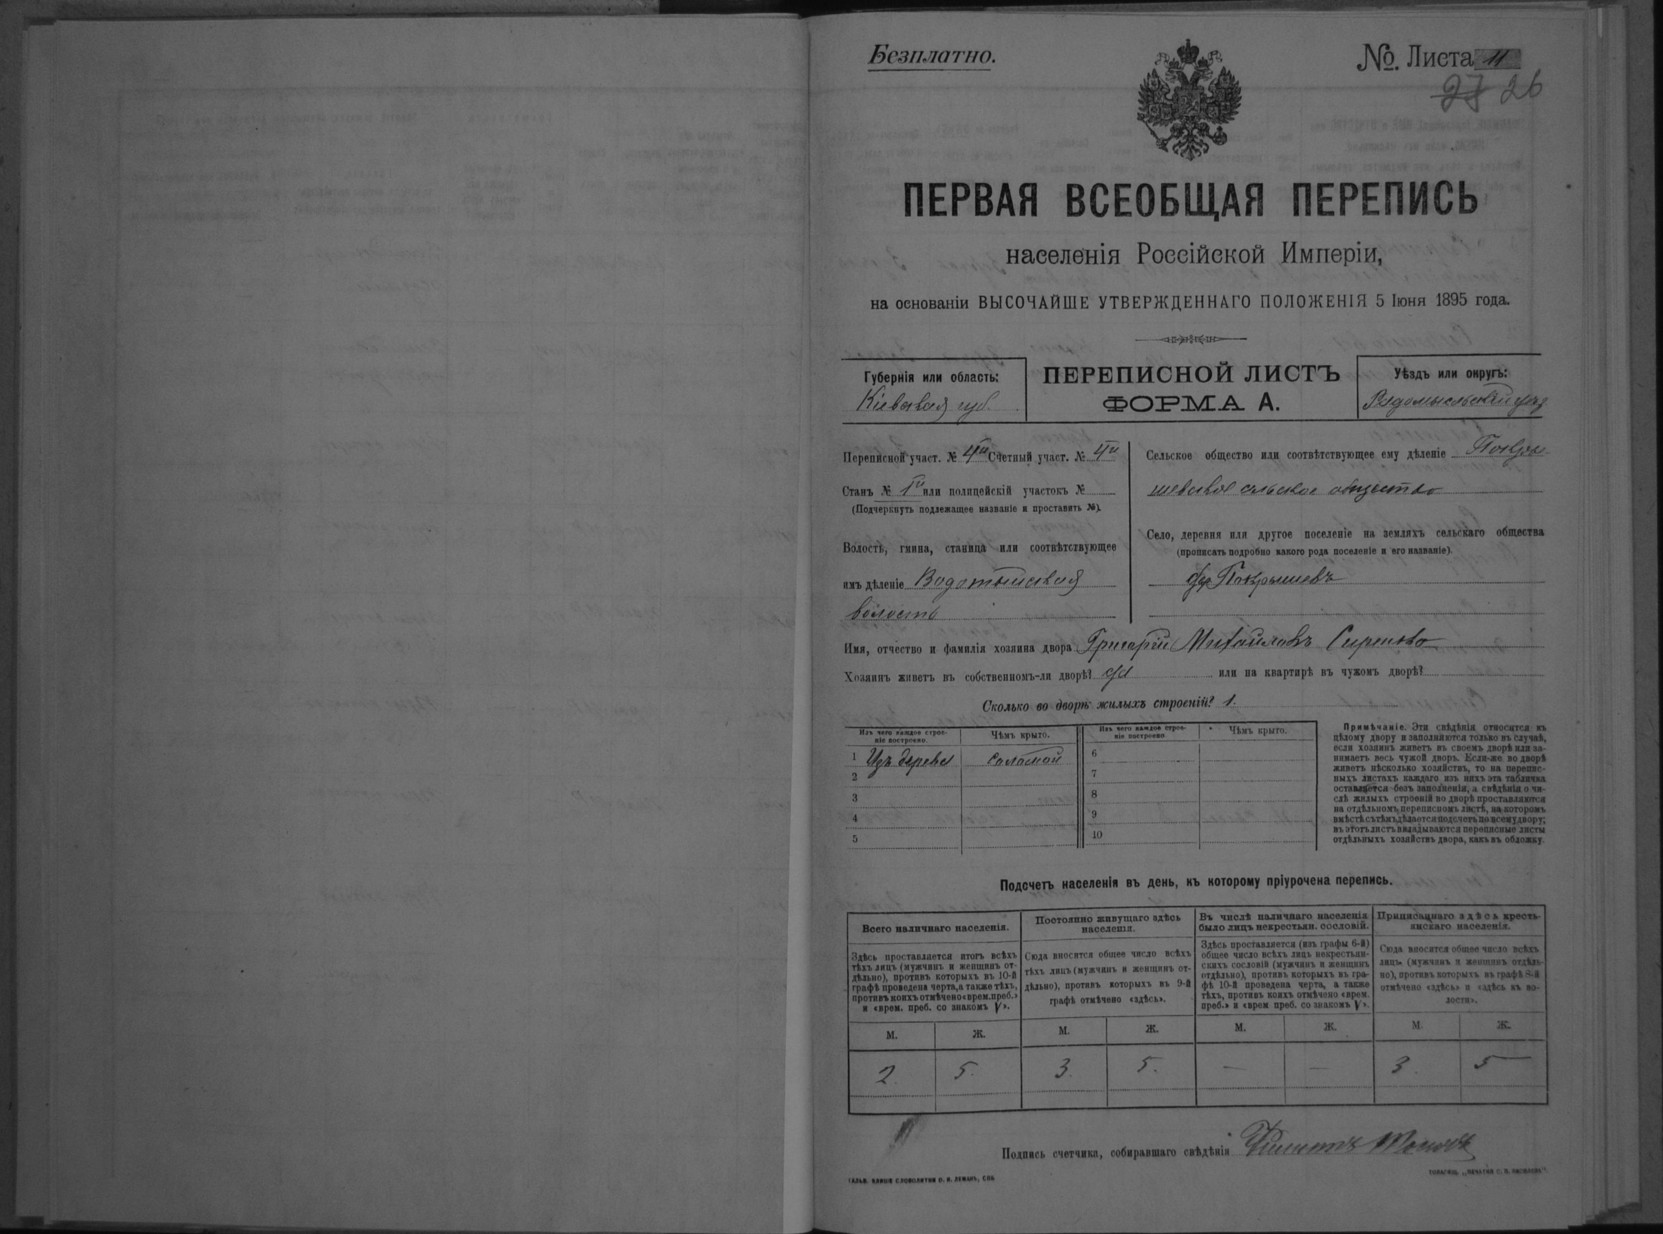 Безплатно.
№. Листа 11
27 26
ПЕРВАЯ ВСЕОБЩАЯ ПЕРЕПИСЬ
населенія Россійской Имперіи,
на основаніи ВЫСОЧАЙШЕ УТВЕРЖДЕННАГО ПОЛОЖЕНІЯ 5 Іюня 1895 года.
Губернія или область:
Кіевская губ.
ПЕРЕПИСНОЙ ЛИСТЪ
ФОРМА А.
Уѣздъ или округъ:
Радомысльскій уѣзд
Переписной участ. № 4й Счетный участ. № 4й
Станъ № 1й или полицейскій участокъ №
(Подчеркнуть подлежащее названіе и проставить №).
Волость, гмина, станица или соотвѣтствующее
имъ дѣленіе Водотыйская
волость
Сельское общество или соотвѣтствующее ему дѣленіе Покры
шевское сельское общество
Село, деревня или другое поселеніе на земляхъ сельскаго общества
(прописать подробно какого рода поселеніе и его названіе).
Покрышевъ
Имя, отчество и фамилія хозяина двора Григорій Михайловъ Сиренко
Хозяинъ живетъ въ собственномъ-ли дворѣ? да или на квартирѣ въ чужомъ дворѣ?
Сколько во дворѣ жилыхъ строеній? 1.
Изъ чего каждое строеніе построено. Чѣмъ крыто. Изъ чего каждое строеніе построено Чѣмъ крыто.
1 Изъ дерева соломой 6
2 7
3 8
4 9
5 10
Примѣчаніе. Эти свѣдѣнія относятся къ
цѣлому двору и заполняются только въ случаѣ,
если хозяинъ живетъ въ своемъ дворѣ или за-
нимаетъ весь чужой дворъ. Если-же во дворѣ
живетъ нѣсколько хозяйствъ, то на перепис-
ныхъ листахъ каждаго изъ нихъ эта табличка
остается безъ заполненія, а свѣдѣнія о чи-
слѣ жилыхъ строеній во дворѣ проставляются
на отдѣльномъ переписномъ листѣ, на которомъ
вмѣстѣ съ тѣмъ дѣлается подсчетъ по всему двору;
въ этотъ листъ вкладываются переписные листы
отдѣльныхъ хозяйствъ двора, какъ въ обложку.
Подсчетъ населенія въ день, къ которому пріурочена перепись.
Всего наличнаго населенія.
Здѣсь проставляется итогъ всѣхъ
тѣхъ лицъ (мужчинъ и женщинъ от-
дѣльно), противъ которыхъ въ 10-й
графѣ проведена черта, а также тѣхъ,
противъ коихъ отмѣчено «врем. преб.»
и «врем. преб. со знакомъ V».
Постоянно живущаго здѣсь
населенія.
Сюда вносится общее число всѣхъ
тѣхъ лицъ (мужчинъ и женщинъ от-
дѣльно), противъ которыхъ въ 9-й
графѣ отмѣчено «здѣсь».
Въ числѣ наличнаго населенія
было лицъ некрестьян. сословій.
Здѣсь проставляется (изъ графы 6-й)
общее число всѣхъ лицъ некрестьян-
скихъ сословій (мужчинъ и женщинъ
отдѣльно), противъ которыхъ въ гра-
фѣ 10-й проведена черта, а также
тѣхъ, противъ коихъ отмѣчено «врем.
преб.» и «врем преб. со знакомъ V».
Приписаннаго здѣсь кресть-
янскаго населенія.
Сюда вносится общее число всѣхъ
лицъ (мужчинъ и женщинъ отдѣль-
но), противъ которыхъ въ графѣ 8-й
отмѣчено «здѣсь» и «здѣсь къ во-
лости».
М. Ж. М. Ж. М. Ж. М. Ж.
2. 5. 3. 5. — — 3 5
Подпись счетчика, собиравшаго свѣдѣнія
ГАЛЬВ. КЛИШЕ СЛОВОЛИТНИ О. И. ЛЕМАНЪ, СПБ